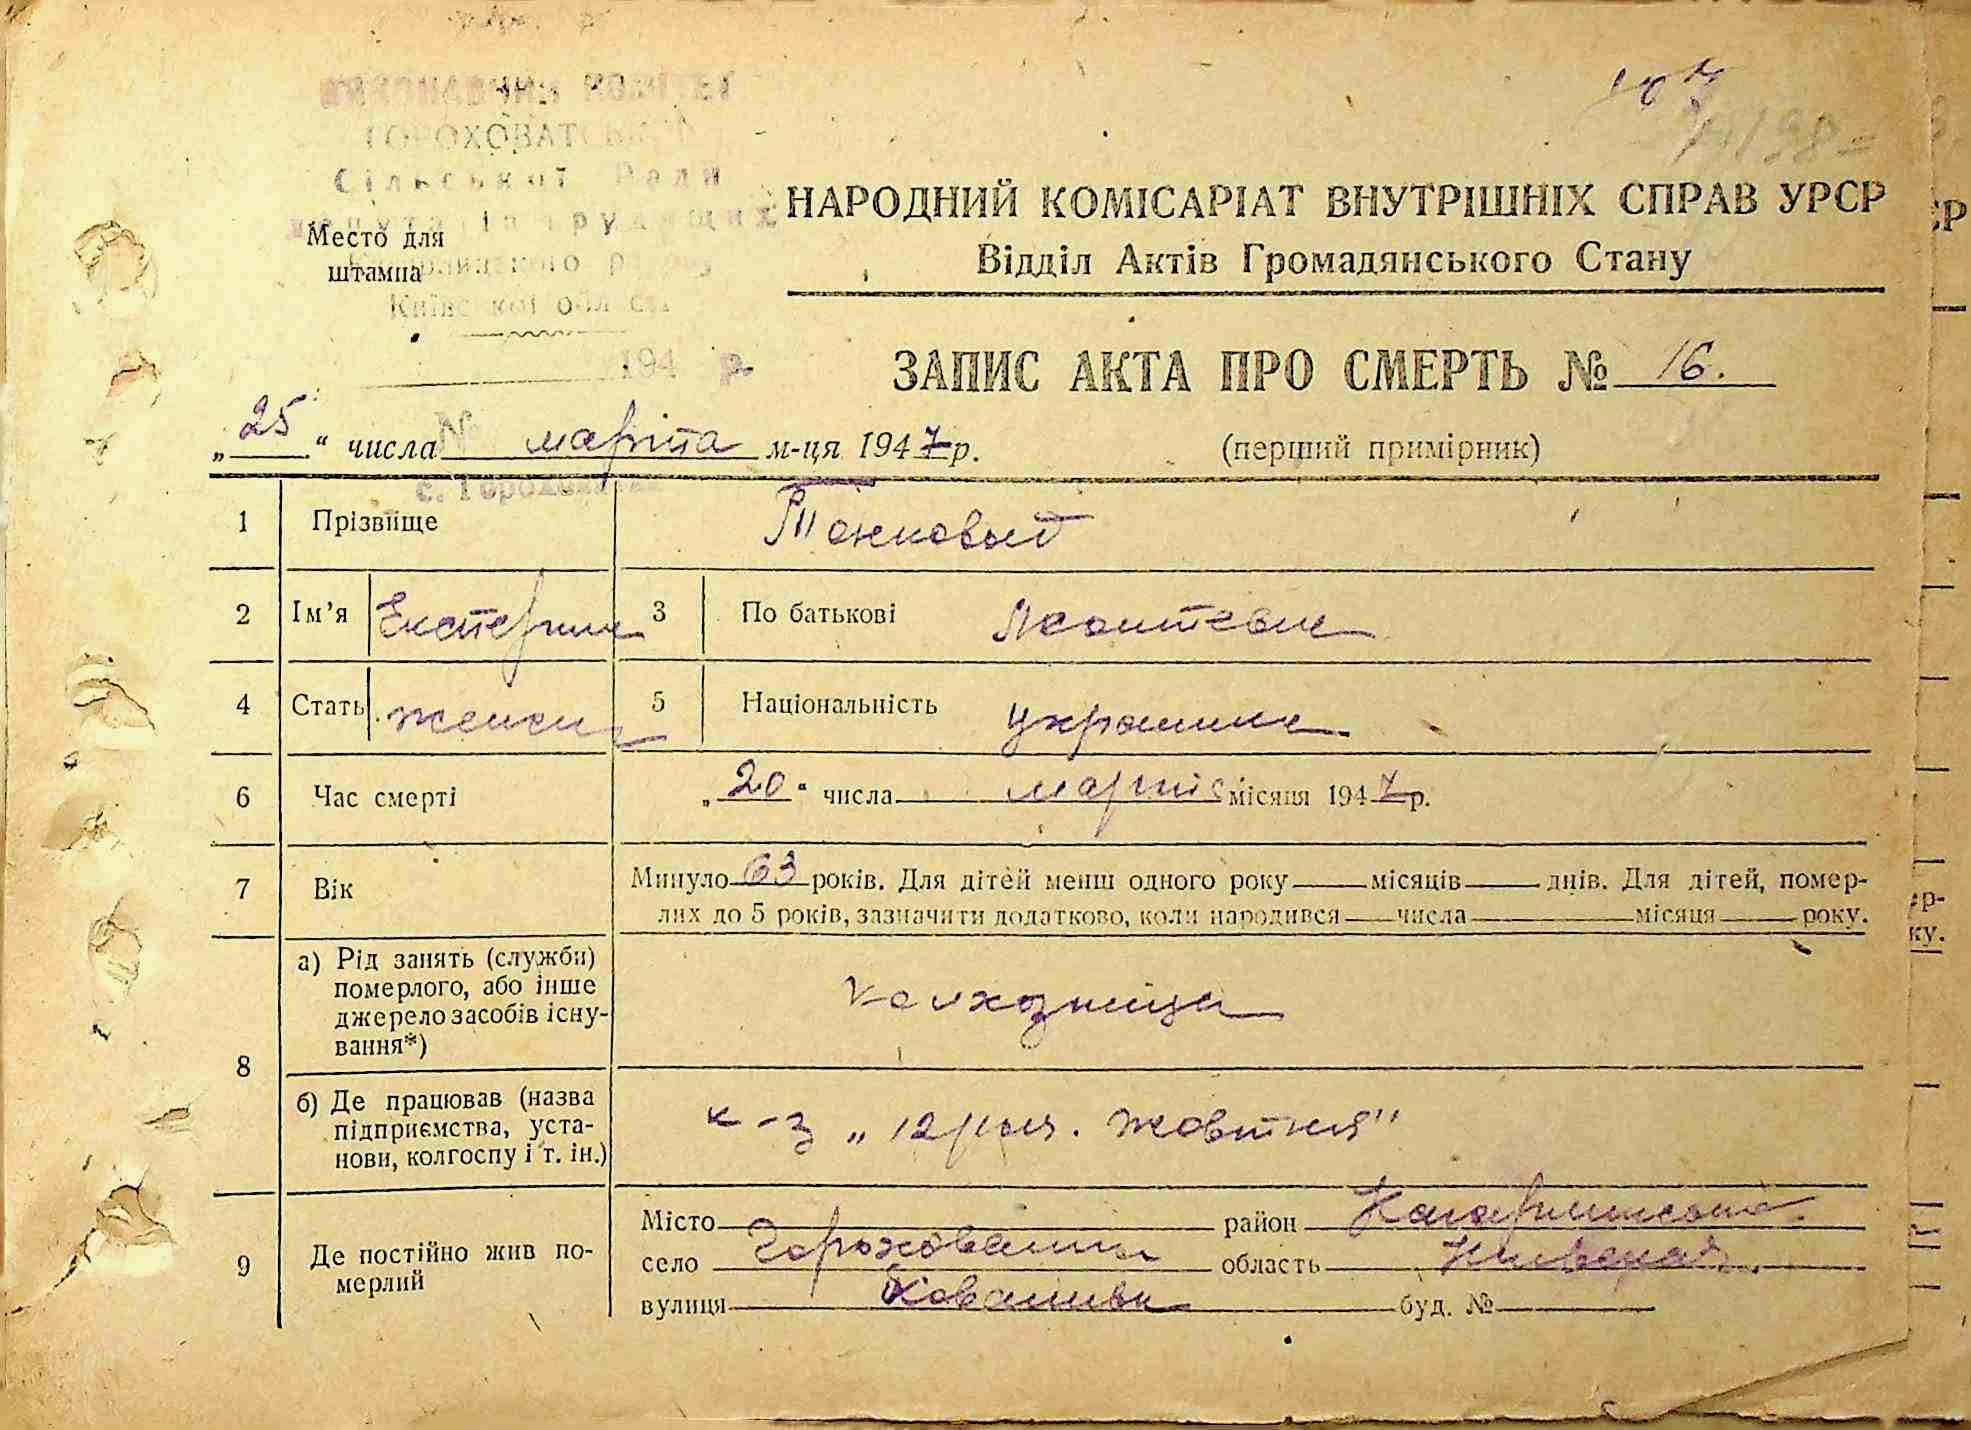 ВИКОНАВЧИЙ КОМІТЕТ
ГОРОХОВАТСЬКОЇ
Сільської Ради
депутатів трудящих
Київської області
194 р.
№
с. Горохов
Место для
штампа
НАРОДНИЙ КОМІСАРІАТ ВНУТРІШНІХ СПРАВ УРСР
Відділ Актів Громадянського Стану
ЗАПИС АКТА ПРО СМЕРТЬ № 16.
„25“ числа марта м-ця 1947 р.
(перший примірник)
1 Прізвище Тонковый
2 Ім’я Екатерина 3 По батькові Леонтевна
4 Стать женск 5 Національність украинка
6 Час смерті „20“ числа марта місяця 1947 р.
7 Вік Минуло 63 років. Для дітей менш одного року місяців днів. Для дітей, помер-
лих до 5 років, зазначити додатково, коли народився числа місяця року.
8 а) Рід занять (служби)
померлого, або інше
джерело засобів існу-
вання*)
колхозница
б) Де працював (назва
підприємства, уста-
нови, колгоспу і т. ін.)
к-з „12 річ. Жовтня"
9 Де постійно жив по-
мерлий
Місто район Кагарлыкский
село Гороховатка область Киевская
вулиця Ковалевка буд. №